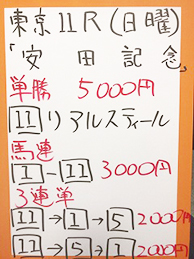 東京11R(日曜)
「安田記念」
単勝 5000円
11 リアルスティール
馬連
1-11 3000円
3連単
11→1→5 2000円
11→5→1 2000円